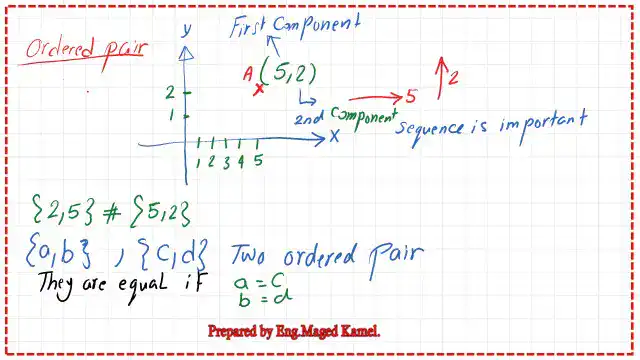 First Component
Ordered pair
y
A (5,2)
5
2
2
1
2nd Component
X
sequence is important
1 2 3 4 5
{2,5} # {5,2}
{a,b} , {c,d} Two ordered pair
They are equal if a = c
b = d
Prepared by Eng.Maged Kamel.